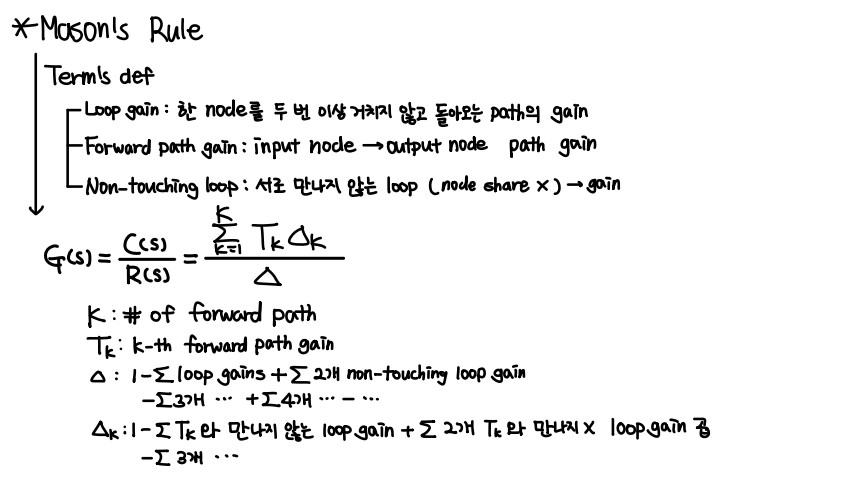 * Mason's Rule
Term's def
Loop gain : 한 node를 두 번 이상 거치지 않고 돌아오는 path의 gain
Forward path gain : input node → output node path gain
Non-touching loop : 서로 만나지 않는 loop (node share ×) → gain
G(s) = C(s)/R(s) = ∑_{k=1}^{K} T_k Δ_k / Δ
K : # of forward path
T_k : k-th forward path gain
Δ : 1 - ∑ loop gains + ∑ 2개 non-touching loop gain
- ∑ 3개 ⋯ + ∑ 4개 ⋯ - ⋯
Δ_k : 1 - ∑ T_k 와 만나지 않는 loop gain + ∑ 2개 T_k 와 만나지 × loop gain 곱
- ∑ 3개 ⋯